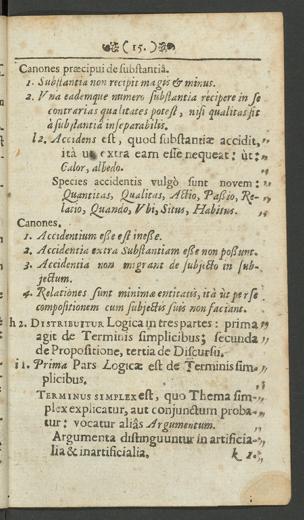 ( 15. )
Canones præcipui de substantiâ.
1. Substantia non recipit magis & minus.
2. Vna eademque numero substantia recipere in se
contrarias qualitates potest, nisi qualitas sit
à substantia inseparabilis.
l 2. Accidens est, quod substantiæ accidit,
ità ut extra eam esse nequeat: ùt:
Calor, albedo.
Species accidentis vulgò sunt novem:
Quantitas, Qualitas, Actio, Passio, Re-
latio, Quando, Vbi, Situs, Habitus.
Canones.
1. Accidentium esse est inesse.
2. Accidentia extra Substantiam esse non possunt.
3. Accidentia non migrant de subjecto in sub-
jectum.
4. Relationes sunt minimæ entitatis, ità ùt per se
compositionem cum subjectis suis non faciant.
h 2. DISTRIBUITUR Logica in tres partes: prima
agit de Terminis simplicibus; secunda
de Propositione, tertia de Discursu.
i 1. Prima Pars Logicæ est de Terminis sim-
plicibus.
TERMINUS SIMPLEX est, quo Thema sim-
plex explicatur, aut conjunctum proba-
tur: vocatur aliàs Argumentum.
Argumenta distinguuntur in artificia-
lia & inartificialia.
k 1.